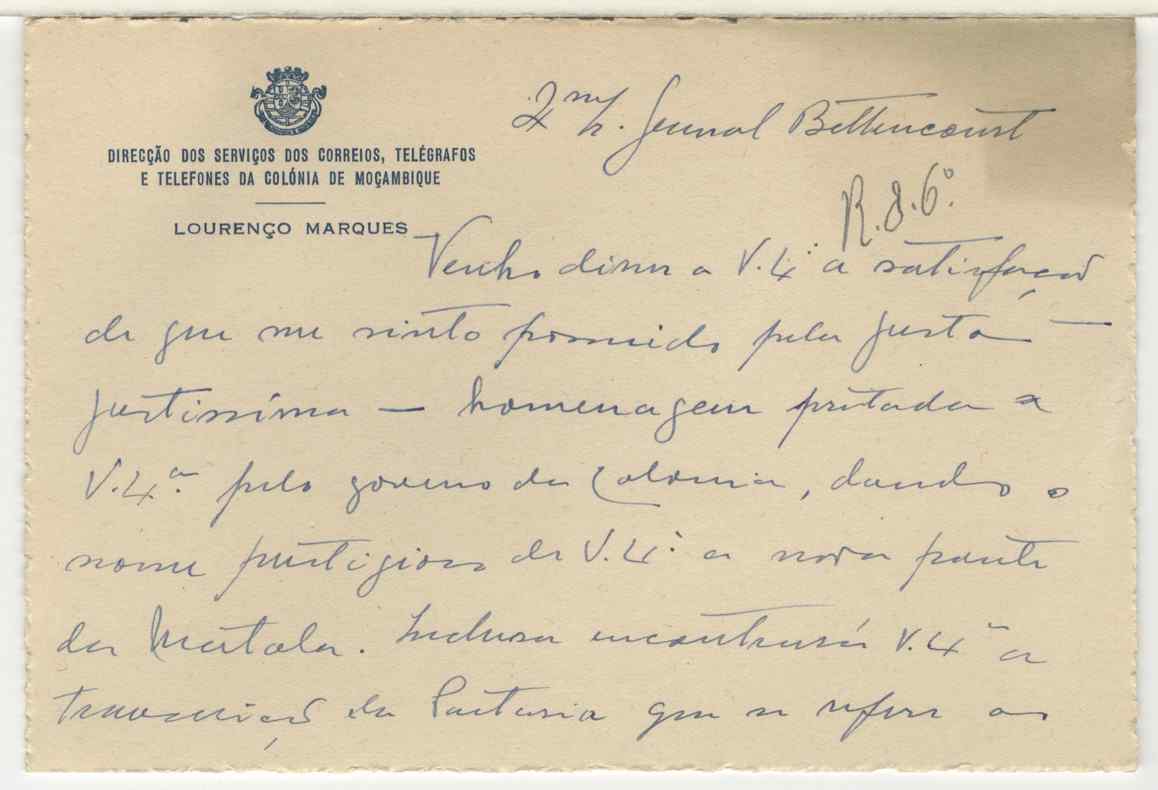 DIRECÇÃO DOS SERVIÇOS DOS CORREIOS, TELÉGRAFOS
E TELEFONES DA COLÓNIA DE MOÇAMBIQUE
LOURENÇO MARQUES
General Bettencourt
R. 8.6º.
Venho dizer a V. Exª a satisfação
de que me sinto possuido pela justa —
justissima — homenagem prestada a
V. Exª. pelo governo da Colonia, dando o
nome prestigioso de V. Exª. a nova ponte
da Matola. Inclusa encontrará V. Exª a
transcrição da Portaria que se refere ao